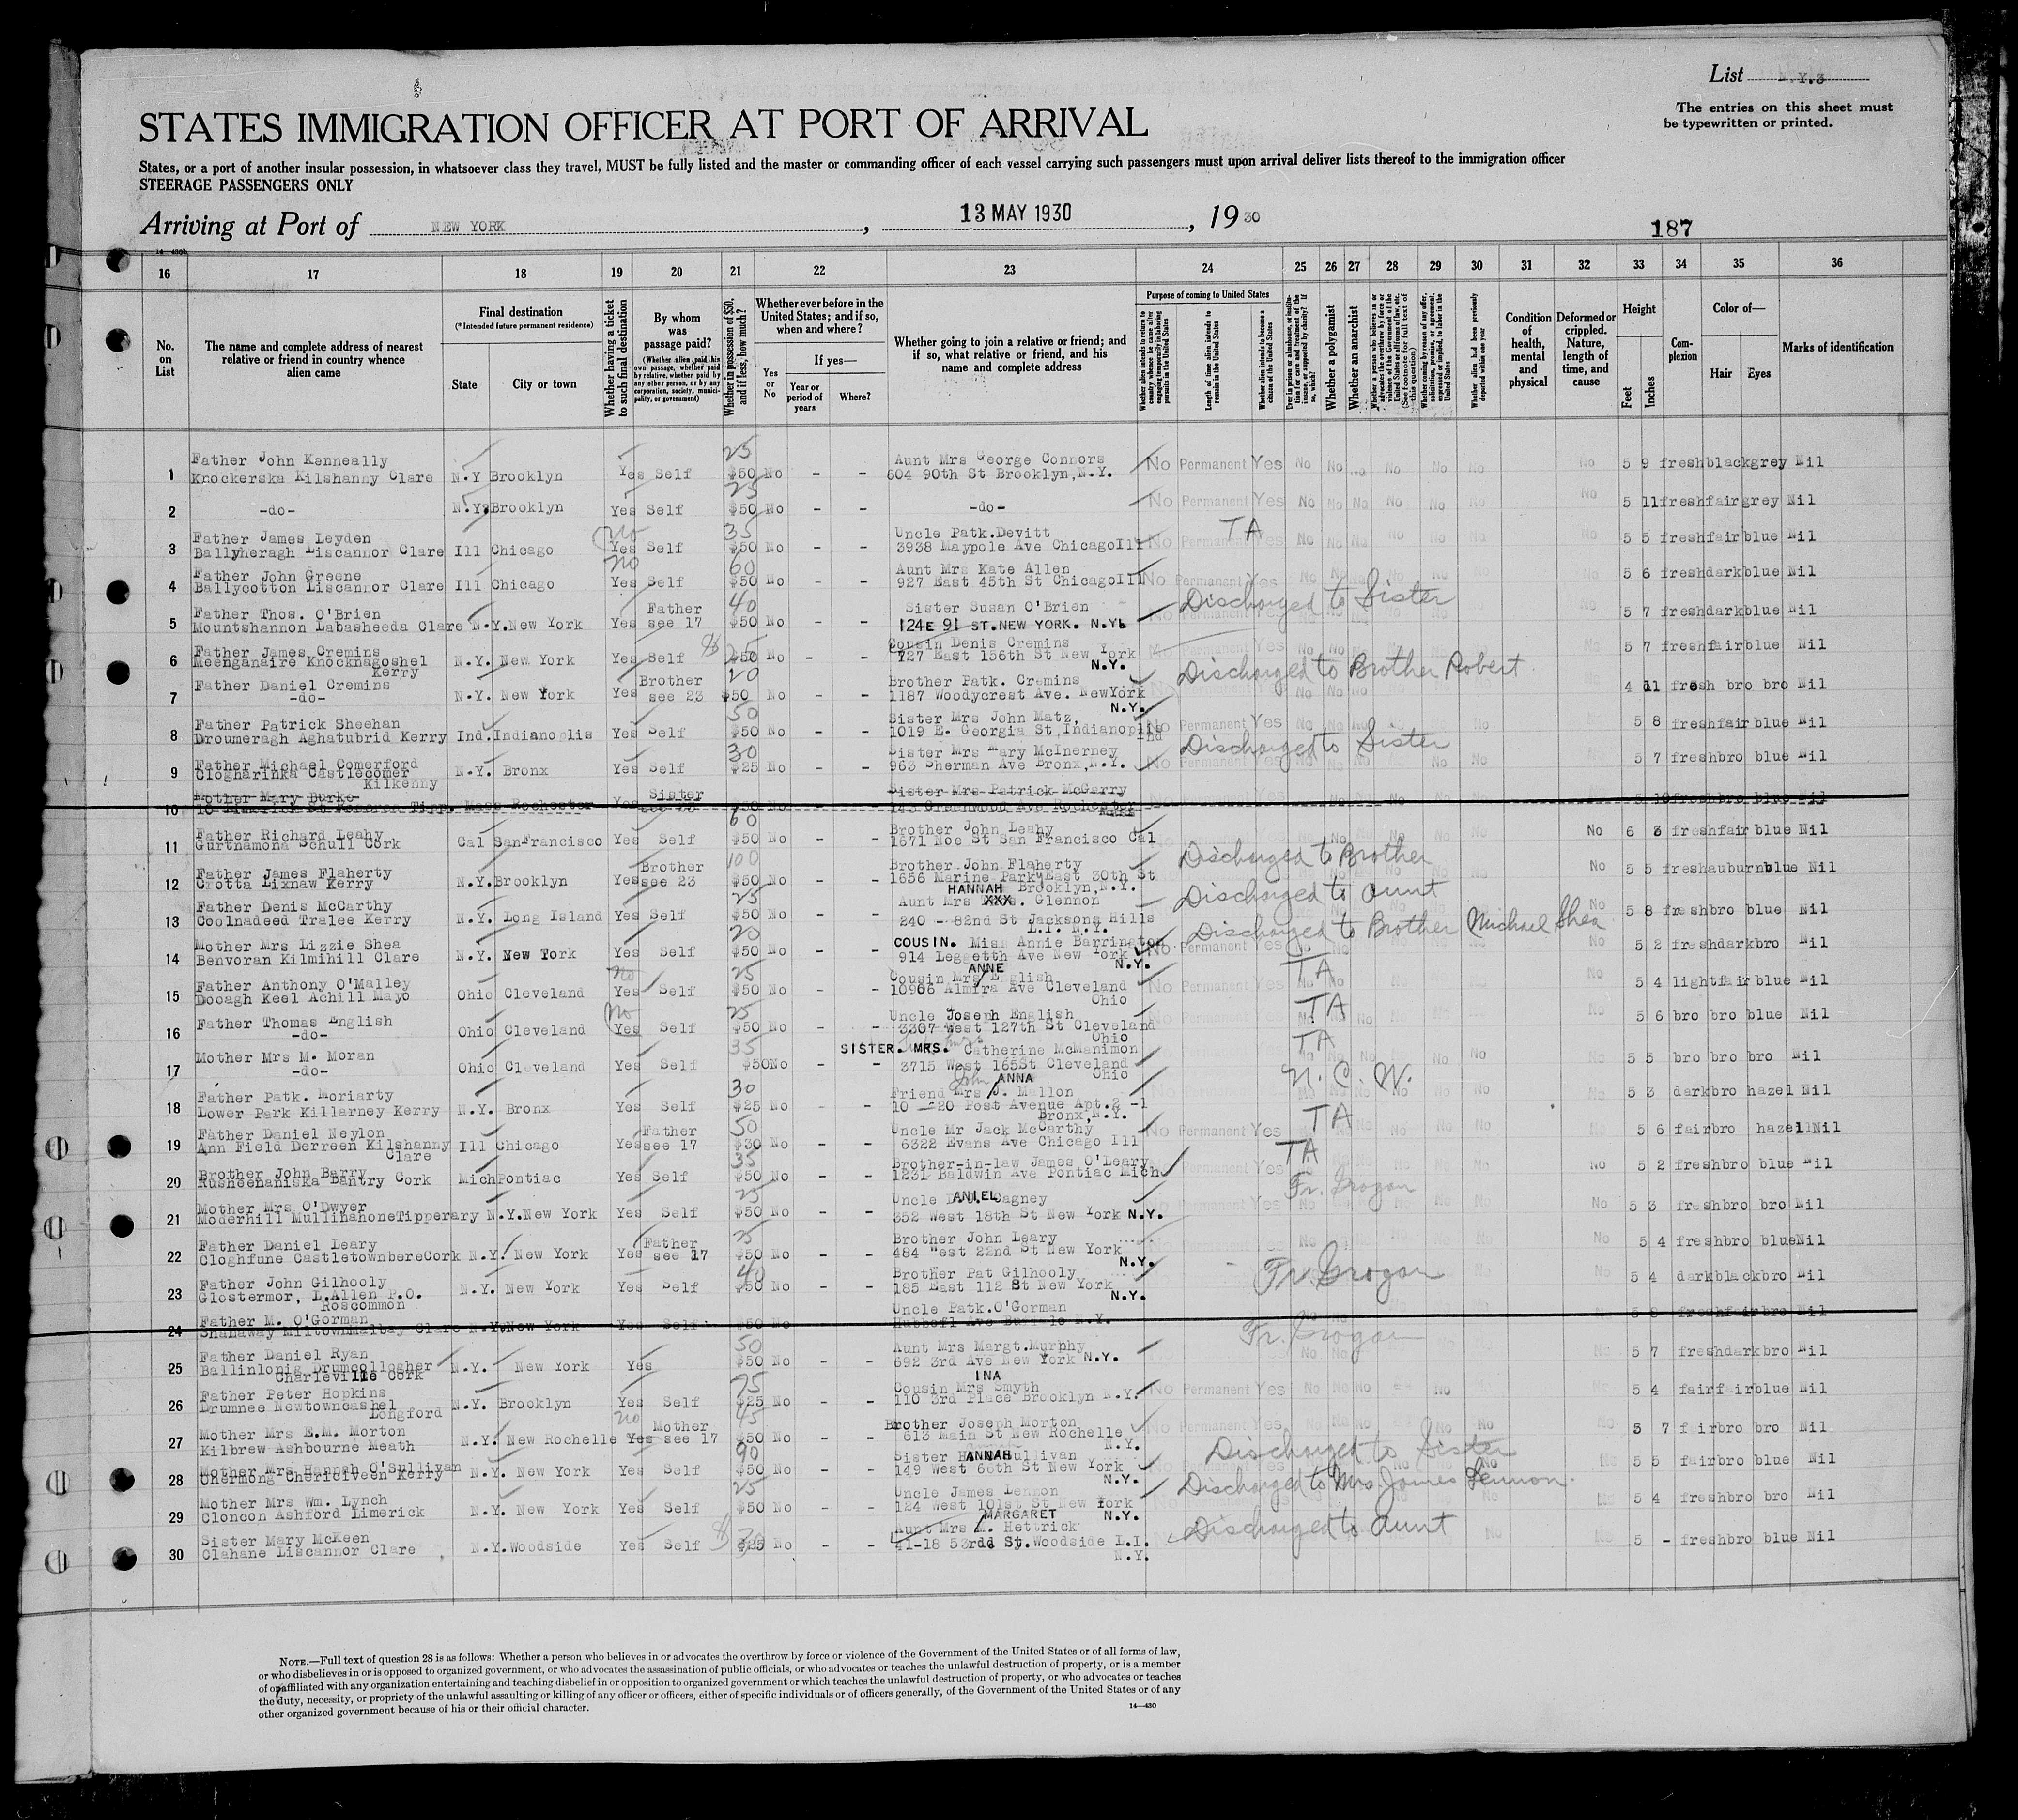 List N.Y.3
The entries on this sheet must
be typewritten or printed.
STATES IMMIGRATION OFFICER AT PORT OF ARRIVAL
States, or a port of another insular possession, in whatsoever class they travel, MUST be fully listed and the master or commanding officer of each vessel carrying such passengers must upon arrival deliver lists thereof to the immigration officer
STEERAGE PASSENGERS ONLY
Arriving at Port of NEW YORK, 13 MAY 1930, 19 30
187
16 17 18 19 20 21 22 23 24 25 26 27 28 29 30 31 32 33 34 35 36
No. on List
The name and complete address of nearest relative or friend in country whence alien came
Final destination
(*Intended future permanent residence)
State
City or town
Whether having a ticket to such final destination
By whom was passage paid?
(Whether alien paid his own passage, whether paid by relative, whether paid by any other person, or by any corporation, society, municipality, or government)
Whether in possession of $50, and if less, how much?
Whether ever before in the United States; and if so, when and where?
Yes or No
If yes—
Year or period of years
Where?
Whether going to join a relative or friend; and if so, what relative or friend, and his name and complete address
Purpose of coming to United States
Whether alien intends to return to country whence he came after engaging temporarily in laboring pursuits in the United States
Length of time alien intends to remain in the United States
Whether alien intends to become a citizen of the United States
Ever in prison or almshouse, or institution for care and treatment of the insane, or supported by charity? If so, which?
Whether a polygamist
Whether an anarchist
Whether coming by reason of any offer, solicitation, promise, or agreement, expressed or implied, to labor in the United States
Whether alien had been previously deported within one year
Condition of health, mental and physical
Deformed or crippled. Nature, length of time, and cause
Height
Feet
Inches
Complexion
Color of—
Hair
Eyes
Marks of identification
25
Father John Kenneally Aunt Mrs George Connors
1 Knockerska Kilshanny Clare N.Y Brooklyn Yes Self $50 No - - 604 90th St Brooklyn,N.Y. No Permanent Yes No No No No No No No 5 9 fresh black grey Nil
25
2 -do- N.Y. Brooklyn Yes Self $50 No - - -do- No Permanent Yes No No No No No No No 5 11 fresh fair grey Nil
No 35 TA
Father James Leyden Uncle Patk.Devitt
3 Ballyheragh Liscannor Clare Ill Chicago Yes Self $50 No - - 3938 Maypole Ave Chicago Ill No Permanent Yes No No No No No No No 5 5 fresh fair blue Nil
No 60
Father John Greene Aunt Mrs Kate Allen
4 Ballycotton Liscannor Clare Ill Chicago Yes Self $50 No - - 927 East 45th St Chicago Ill No Permanent Yes 5 6 fresh dark blue Nil
40 Discharged to Sister
Father Thos. O'Brien Father Sister Susan O'Brien
5 Mountshannon Labasheeda Clare N.Y. New York Yes see 17 $50 No - - 124E 91 ST. NEW YORK. N.Y. 5 7 fresh dark blue Nil
Father James Cremins Cousin Denis Cremins
6 Meenganaire Knocknagoshel Kerry N.Y. New York Yes Self $50 No - - 727 East 156th St New York N.Y. 5 7 fresh fair blue Nil
20 Discharged to Brother Robert
Father Daniel Cremins Brother Brother Patk. Cremins
7 -do- N.Y. New York Yes see 23 $50 No - - 1187 Woodycrest Ave. NewYork N.Y. 4 11 fresh bro bro Nil
50
Father Patrick Sheehan Sister Mrs John Matz,
8 Droumeragh Aghatubrid Kerry Ind. Indianoplis Yes Self $50 No - - 1019 E. Georgia St,Indianoplis Ind No Permanent Yes 5 8 fresh fair blue Nil
30 Discharged to Sister
Father Michael Comerford Sister Mrs Mary McInerney
9 Clogharinka Castlecomer Kilkenny N.Y. Bronx Yes Self $25 No - - 963 Sherman Ave Bronx,N.Y. No Permanent Yes 5 7 fresh bro blue Nil
Mother Mary Burke Sister Sister Mrs Patrick McGarry
10 Mass Rochester Yes see 23 $50 No 5 10 fresh bro blue Nil
60
Father Richard Leahy Brother John Leahy
11 Gurtnamona Schull Cork Cal SanFrancisco Yes Self $50 No - - 1671 Noe St San Francisco Cal No 6 3 fresh fair blue Nil
100 Discharged to Brother
Father James Flaherty Brother Brother John Flaherty
12 Crotta Lixnaw Kerry N.Y. Brooklyn Yes see 23 $50 No - - 1656 Marine Parky East 30th St Brooklyn,N.Y. No 5 5 fresh auburn blue Nil
25 HANNAH Discharged to Aunt
Father Denis McCarthy Aunt Mrs XXX. Glennon
13 Coolnadeed Tralee Kerry N.Y. Long Island Yes Self $50 No - - 240 - 82nd St Jacksons Hills L.I. N.Y. No 5 8 fresh bro blue Nil
20 Discharged to Brother Michael Shea
Mother Mrs Lizzie Shea COUSIN. Miss Annie Barrington
14 Benvoran Kilmihill Clare N.Y. New York Yes Self $50 No - - 914 Leggetth Ave New York N.Y. No Permanent Yes No 5 2 fresh dark bro Nil
No 25 ANNE TA
Father Anthony O'Malley Cousin Mrs English
15 Dooagh Keel Achill Mayo Ohio Cleveland Yes Self $50 No - - 10906 Almira Ave Cleveland Ohio No Permanent Yes No 5 4 light fair blue Nil
No 25 TA
Father Thomas English Uncle Joseph English
16 -do- Ohio Cleveland Yes Self $50 No - - 3307 West 127th St Cleveland Ohio 5 6 bro bro blue Nil
35 TA
Mother Mrs M. Moran SISTER. MRS. Catherine McManimon
17 -do- Ohio Cleveland Yes Self $50 No - - 3715 West 165St Cleveland Ohio 5 5 bro bro bro Nil
30 John ANNA N.C.W.
Father Patk. Moriarty Friend Mrs J. Mallon
18 Lower Park Killarney Kerry N.Y. Bronx Yes Self $25 No - - 10 - 20 Post Avenue Apt.2 -1 Bronx,N.Y. 5 3 dark bro hazel Nil
50 TA
Father Daniel Neylon Father Uncle Mr Jack McCarthy
19 Ann Field Derreen Kilshanny Clare Ill Chicago Yes see 17 $30 No - - 6322 Evans Ave Chicago Ill No Permanent Yes 5 6 fair bro hazel Nil
35 TA
Brother John Barry Brother-in-law James O'Leary
20 Rusheenaniska Bantry Cork Mich Pontiac Yes Self $50 No - - 1231 Baldwin Ave Pontiac Mich Permanent Yes No 5 2 fresh bro blue Nil
25 Fr. Grogan
Mother Mrs O'Dwyer Uncle DANIEL Cagney
21 Moderhill Mullinahone Tipperary N.Y. New York Yes Self $50 No - - 352 West 18th St New York N.Y. No 5 3 fresh bro bro Nil
Father Daniel Leary Father Brother John Leary
22 Cloghfune Castletownbere Cork N.Y. New York Yes see 17 $50 No - - 484 West 22nd St New York N.Y. No 5 4 fresh bro blue Nil
40 Fr. Grogan
Father John Gilhooly Brother Pat Gilhooly
23 Glostermor, L.Allen P.O. Roscommon N.Y. New York Yes Self $50 No - - 185 East 112 St New York N.Y. 5 4 dark black bro Nil
Father M. O'Gorman Uncle Patk.O'Gorman
24 Shanaway MiltownMalbay Clare N.Y. New York Yes Self $50 No Ave Buffalo N.Y. 5 8 fresh fair bro Nil
50 Fr. Grogan
Father Daniel Ryan Aunt Mrs Margt.Murphy
25 Ballinlonig Drumcollogher Charleville Cork N.Y. New York Yes $50 No - - 692 3rd Ave New York N.Y. 5 7 fresh dark bro Nil
75 INA
Father Peter Hopkins Cousin Mrs Smyth
26 Drumnee Newtowncashel Longford N.Y. Brooklyn Yes Self $25 No - - 110 3rd Place Brooklyn N.Y. No Permanent Yes No No No No 5 4 fair fair blue Nil
No 45
Mother Mrs E.M. Morton Mother Brother Joseph Morton
27 Kilbrew Ashbourne Meath N.Y. New Rochelle Yes see 17 $50 No - - 613 Main St New Rochelle N.Y. No Permanent Yes No No 5 7 fair bro bro Nil
90 Discharged to Sister
Mother Mrs Hannah O'Sullivan Sister HANNAH Sullivan
28 Chermong Cherciveen Kerry N.Y. New York Yes Self $50 No - - 149 West 66th St New York N.Y. 5 5 fair bro blue Nil
25 Discharged to Mrs. James Lennon.
Mother Mrs Wm. Lynch Uncle James Lennon
29 Cloncon Ashford Limerick N.Y. New York Yes Self $50 No - - 124 West 101st St New York N.Y. 5 4 fresh bro bro Nil
$30 MARGARET Discharged to Aunt
Sister Mary McKeen Aunt Mrs M. Hettrick
30 Clahane Liscannor Clare N.Y. Woodside Yes Self $25 No - - 41-18 53rdd St.Woodside L.I. N.Y. 5 - fresh bro blue Nil
NOTE.—Full text of question 28 is as follows: Whether a person who believes in or advocates the overthrow by force or violence of the Government of the United States or of all forms of law,
or who disbelieves in or is opposed to organized government, or who advocates the assassination of public officials, or who advocates or teaches the unlawful destruction of property, or is a member
of or affiliated with any organization entertaining and teaching disbelief in or opposition to organized government or which teaches the unlawful destruction of property, or who advocates or teaches
the duty, necessity, or propriety of the unlawful assaulting or killing of any officer or officers, either of specific individuals or of officers generally, of the Government of the United States or of any
other organized government because of his or their official character.
14—430